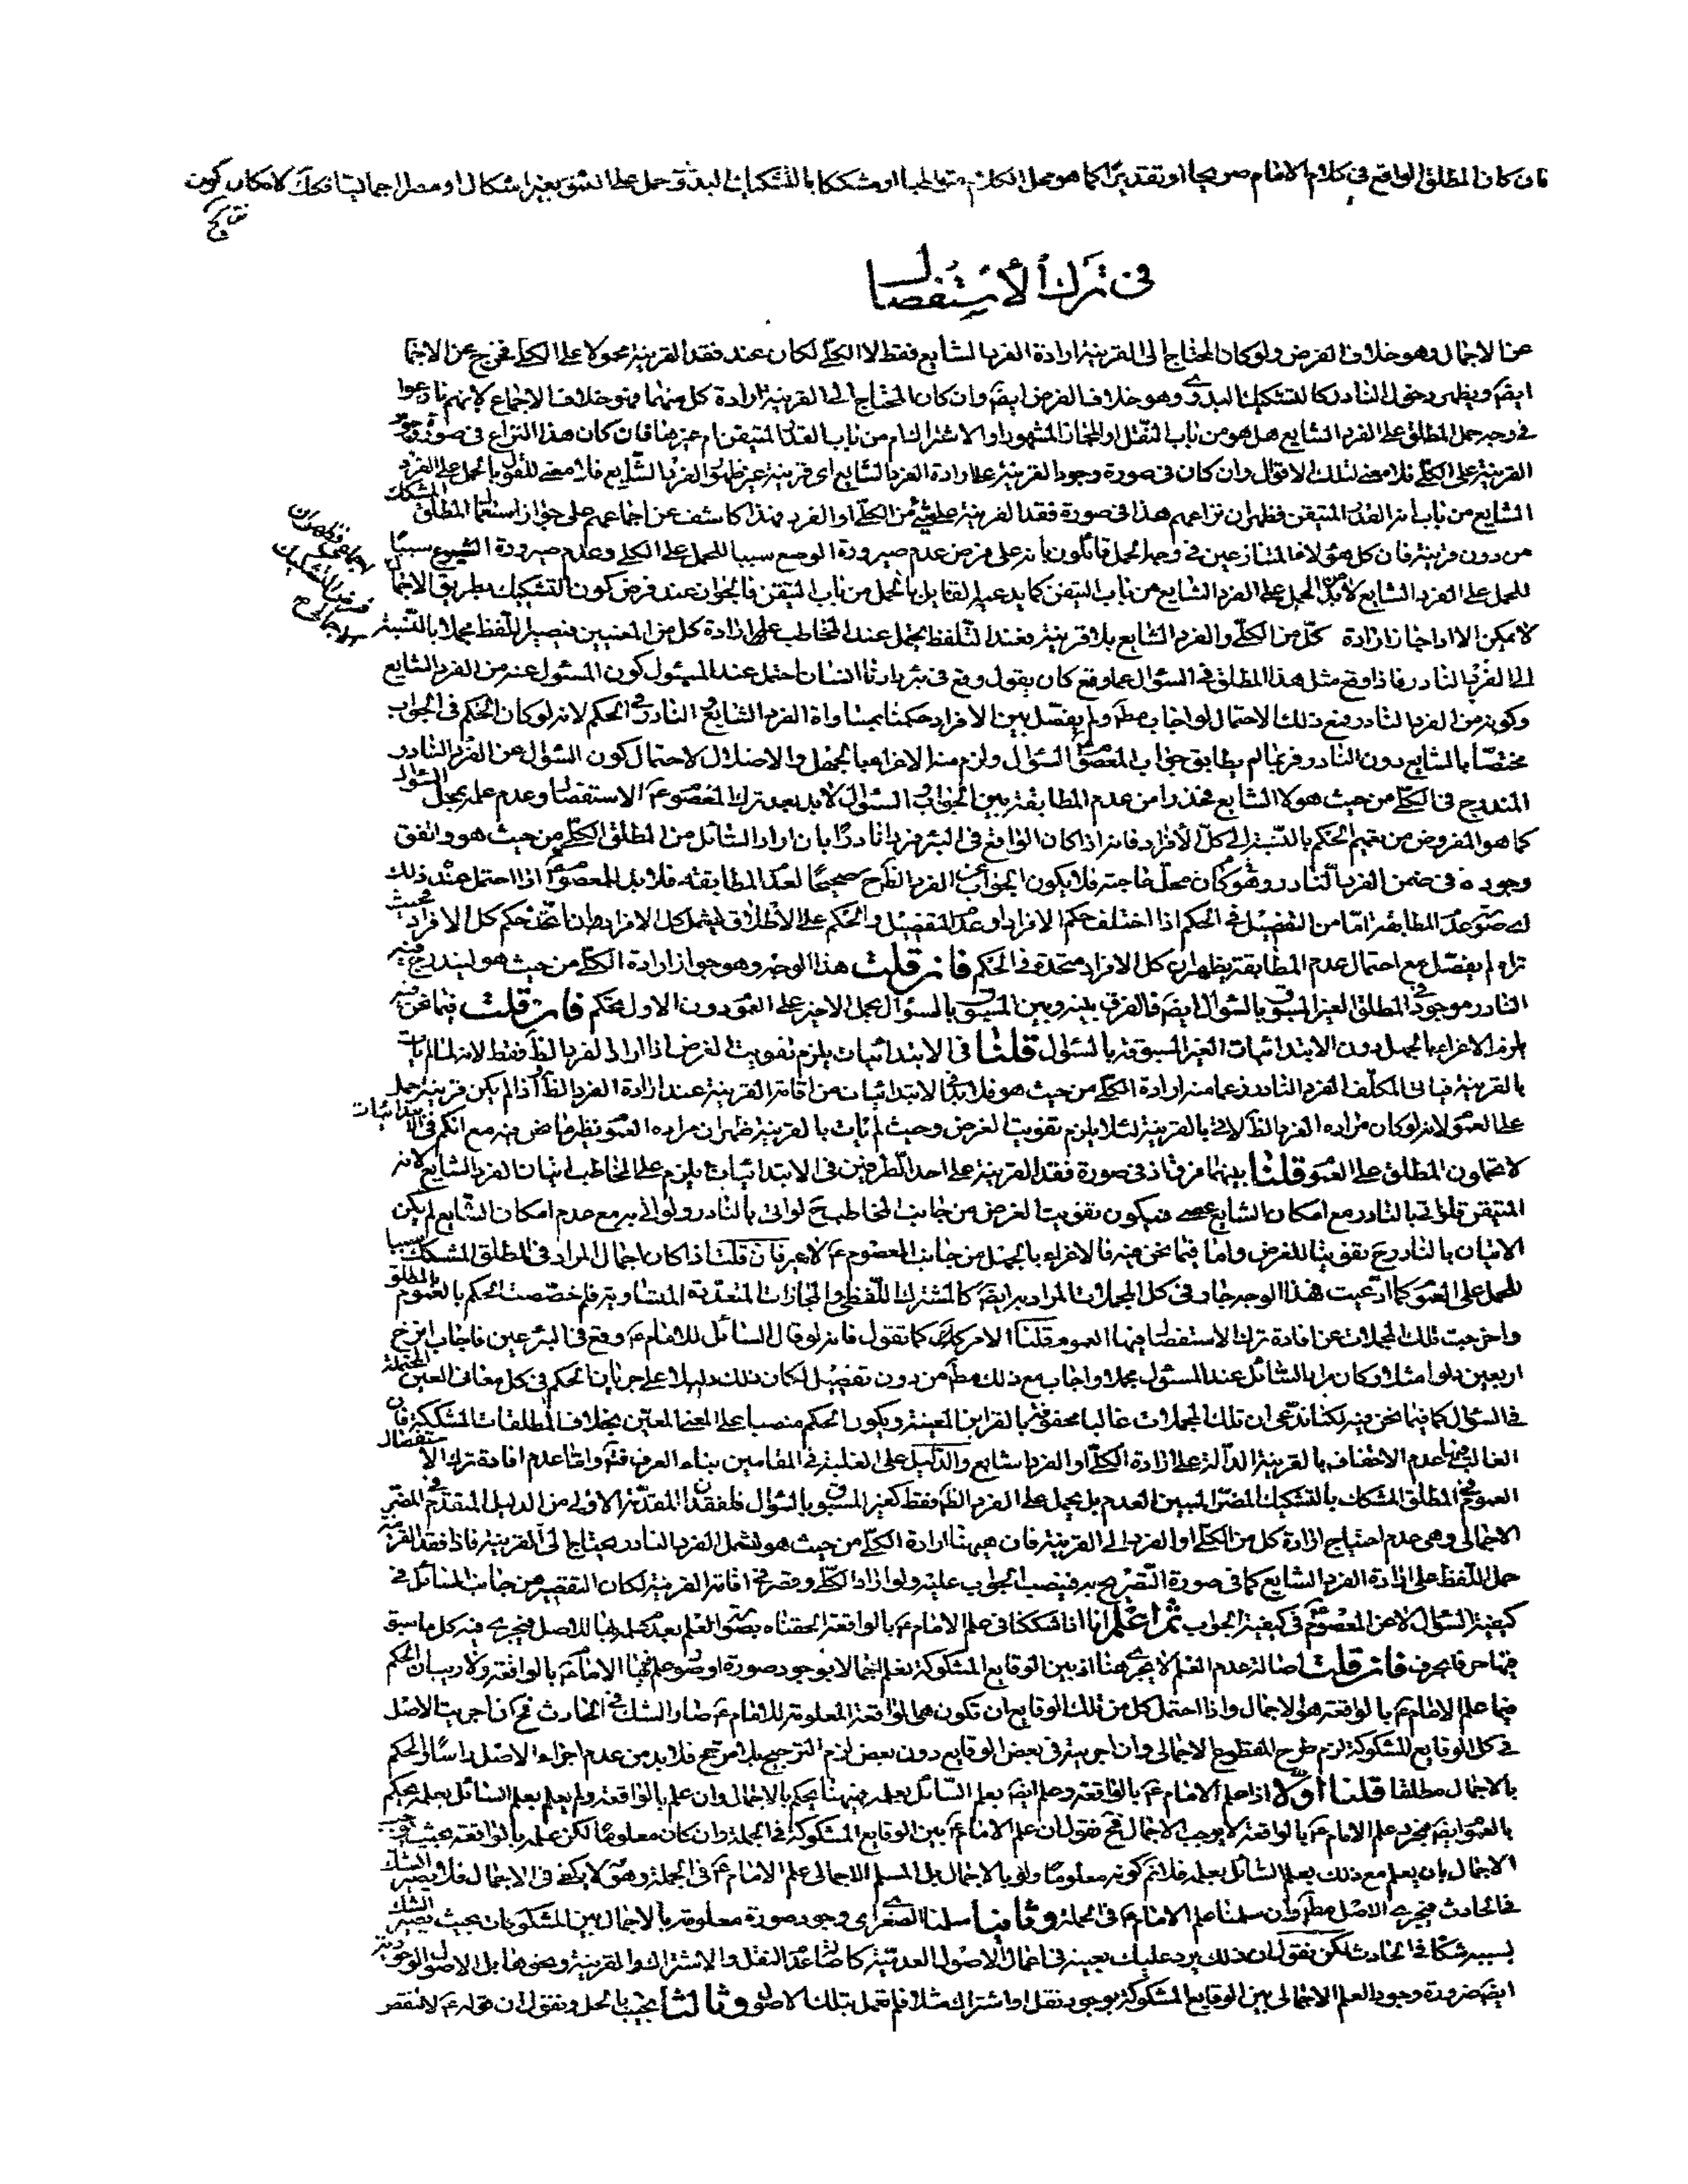 فان كان المطلق الواقع في كلام الامام صريحا او تقديرا كما هو محل الكلام متواطيا او مشككا بالتشكيك البدوي حمل على العموم بغير اشكال او مضرا اجماليا فكك لامكان كون
في ترك الاستفصال
عن الاجمال وهو خلاف الفرض ولو كان المحتاج الى القرينة ارادة الفرد الشايع فقط لا الكلي لكان عند فقد القرينة محمولا على الكلي فخرج عن الاجما
ايضا ويظهر دخول النادر كالتشكيك البدوي وهو خلاف الفرض ايضا وان كان المحتاج الى القرينة ارادة كل منهما فهو خلاف الاجماع لانهم نازعوا
في وجه حمل المطلق على الفرد الشايع هل هو من باب النقل او المجاز المشهور او الاشتراك ام من باب القدر المتيقن ام غيرها فان كان هذا النزاع في صورة وجود
القرينة على الكلي فلا معنى لتلك الاقوال وان كان في صورة وجود القرينة على ارادة الفرد الشايع اي قرينة غير ظهور الفرد الشايع فلا معنى للقول بالحمل على الفرد
الشايع من باب انه القدر المتيقن فظهر ان نزاعهم هذا في صورة فقد القرينة على شيء من الكلي او الفرد وهذا كاشف عن اجماعهم على جواز استعمال المطلق المشكك
من دون قرينة فان كل هؤلاء المتنازعين في وجه الحمل قائلون بانه على فرض عدم صيرورة الوضع سببا للحمل على الكلي وعدم صيرورة الشيوع سببا
للحمل على الفرد الشايع لا بد من الحمل على الفرد الشايع من باب التيقن كما يدعيه القايل بالحمل من باب التيقن فالجواز عند فرض كون التشكيك بطريق الاجمال
لا يمكن الا اذا جاز ارادة كل من الكلي والفرد الشايع بلا قرينة فعند التلفظ يحتمل عند المخاطب ارادة كل من المعنيين فيصير اللفظ مجملا بالنسبة
الى الفرد النادر فاذا وقع مثل هذا المطلق في السؤال عما وقع كان يقول وقع في بئر دارنا انسان احتمل عند المسئول كون المسئول عنه من الفرد الشايع
وكونه من الفرد النادر فمع ذلك الاحتمال لو اجاب مطلقا ولم يفصل بين الافراد حكمنا بمساواة الفرد الشايع والنادر في الحكم لانه لو كان الحكم في الجواب
مختصا بالشايع دون النادر فربما لم يطابق جواب المعصوم السؤال ولزم منه الاغراء بالجهل والاضلال لاحتمال كون السؤال عن الفرد النادر
المندرج في الكلي من حيث هو لا الشايع فحذرا من عدم المطابقة بين الجواب والسؤال لا بد بعد ترك المعصوم ع الاستفصال وعدم علمه بمحل السؤال
كما هو المفروض من تعميم الحكم بالنسبة الى كل الافراد فانه اذا كان الواقع في البئر فردا نادرا بان اراد السائل من المطلق الكلي من حيث هو واتفق
وجوده في ضمن الفرد النادر وهو كان محل حاجته فلا يكون الجواب عن الفرد الظاهر صحيحا لعدم المطابقة فلا بد للمعصوم اذا احتمل عنده ذلك
ترى لم يفصل مع احتمال عدم المطابقة يظهر ان كل الافراد متحدة في الحكم فان قلت هذا الوجه وهو جواز ارادة الكلي من حيث هو ليندرج فيه
النادر موجود في المطلق الغير المسبوق بالسؤال ايضا فالفرق بينه وبين المسبوق بالسؤال بحمل الاخير على العموم دون الاول تحكم فان قلت فيما نحن فيه
يلزم الاغراء بالجهل دون الابتدائيات الغير المسبوقة بالسؤال قلنا في الابتدائيات يلزم تفويت الغرض اذا اراد الفرد الظاهر فقط لانه لما لم يات
بالقرينة فياتي المكلف الفرد النادر زعما منه ارادة الكلي من حيث هو فلا بد في الابتدائيات من اقامة القرينة عند ارادة الفرد الظاهر واذا لم يكن قرينة حمل
على العموم لانه لو كان مراده الفرد الظاهر لاتى بالقرينة لئلا يلزم تفويت الغرض وحيث لم يات بالقرينة ظهر ان مراده العموم نظير ما نحن فيه مع انكم في الابتدائيات
لا تحملون المطلق على العموم قلنا بينهما فرق اذ في صورة فقد القرينة على احد الطرفين في الابتدائيات يلزم على المخاطب اتيان الفرد الشايع لانه
المتيقن فلو اتى بالنادر مع امكان الشايع عصى فيكون تفويت الغرض من جانب المخاطب ح لو اتى بالنادر ولو اتى به مع عدم امكان الشايع لم يكن
الاتيان بالنادر ح تفويتا للغرض واما فيما نحن فيه فالاغراء بالجهل من جانب المعصوم ع لا غير فان قلت اذا كان اجمال المراد في المطلق المشكك سببا
للحمل على العموم كما ادعيت هذا الوجه جار في كل المجملات المراد بها ايضا كالمشترك اللفظي والمجازات المتعددة المتساوية فلم خصصت الحكم بالعموم بالمطلق
واخرجت تلك المجملات عن افادة ترك الاستفصال فيها العموم قلنا الامر كذلك كما تقول فانه لو قال السائل للامام ع وقع في البئر عين فاجاب انزح
اربعين دلوا مثلا وكان مراد السائل عند المسئول مجملا واجاب مع ذلك مطلقا من دون تفصيل لكان ذلك دليلا على جريان الحكم في كل معاني العين المحتملة
في السؤال كما فيما نحن فيه لكنا ندعي ان تلك المجملات غالبا محفوفة بالقراين المعينة ويكون الحكم منصبا على المعنى المعين بخلاف المطلقات المشككة فان
الغالب فيها عدم الاحتفاف بالقرينة الدالة على ارادة الكلي او الفرد الشايع والدليل على الغلبة في المقامين بناء العرف فتم واما عدم افادة ترك الاستفصال
العموم في المطلق المشكك بالتشكيك المضر المبين العدم بل يحمل على الفرد الظاهر فقط كغير المسبوق بالسؤال فلفقدان المقدمة الاولى من الدليل المتقدم في المضر
الاجمالي وهي عدم احتياج ارادة كل من الكلي او الفرد الى القرينة فان هيهنا ارادة الكلي من حيث هو لتشمل الفرد النادر يحتاج الى القرينة فاذا فقد القرينة
حمل اللفظ على ارادة الفرد الشايع كما في صورة التصريح به فينصب الجواب عليه ولو اراد الكلي وقصر في اقامة القرينة لكان التقصير من جانب السائل في
كيفية السؤال لا عن المعصوم في كيفية الجواب ثم اعلم انا اذا شككنا في علم الامام ع بالواقعة الحقناه بصورة العلم بعدم علمه بها للاصل فيجري فيه كل ما سبق
فيها حرفا بحرف فان قلت اصالة عدم العلم لا يجري هنا اذ بين الوقايع المشكوكة نعلم اجمالا بوجود صورة او صور علم فيها الامام ع بالواقعة ولا ريب ان الحكم
فيما علم الامام ع بالواقعة هو الاجمال واذا احتمل كل من تلك الوقايع ان تكون هي الواقعة المعلومة للامام ع صار الشك في الحادث فح كان اجريت الاصل
في كل الوقايع المشكوكة لزم طرح المقطوع الاجمالي وان اجريته في بعض الوقايع دون بعض لزم الترجيح بلا مرجح فلا بد من عدم اجراء الاصل راسا والحكم
بالاجمال مطلقا قلنا اولا اذا علم الامام ع بالواقعة وعلم ايضا بعلم السائل بعلمه فهيهنا يحكم بالاجمال وان علم بالواقعة ولم يعلم بعلم السائل بعلمه يحكم
بالعموم ايضا فمجرد علم الامام ع بالواقعة لا يوجب الاجمال فح نقول ان علم الامام ع بين الوقايع المشكوكة في الجملة وان كان معلوما لكن علمه بالواقعة بحيث يوجب
الاجمال بان يعلم مع ذلك بعلم السائل بعلمه فلا نم كونه معلوما ولو بالاجمال بل المسلم الاجمالي علم الامام ع في الجملة وهو لا يكفي في الاجمال فلا يصير الشك
في الحادث فيجري الاصل مطلقا وان سلمنا علم الامام ع في الجملة وثانيا سلمنا الصغرى اي وجود صورة معلومة بالاجمال بين المشكوكات بحيث يصير الشك
بسببه شكا في الحادث لكن نقول ان ذلك يرد عليك بعينه في اعمال الاصول العدمية كاصالة عدم النقل والاشتراك والقرينة ونحوها بل الاصول الوجودية
ايضا ضرورة وجود العلم الاجمالي بين الوقايع المشكوكة بوجود نقل او اشتراك مثلا فلم تعمل بتلك الاصول وثالثا نجيب بالحل ونقول ان قوله ع لا تنقض